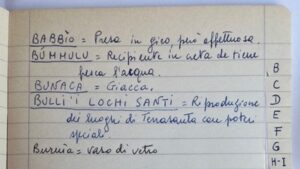 BABBÌO = Presa in giro, però affettuosa.
BÚMMULU = Recipiente in creta che tiene
fresca l'acqua.
BUNACA = Giacca.
BULLI 'I LOCHI SANTI = Riproduzione
dei luoghi di Terrasanta con poteri
speciali.
Burnia = vaso di vetro
B
C
D
E
F
G
H-I